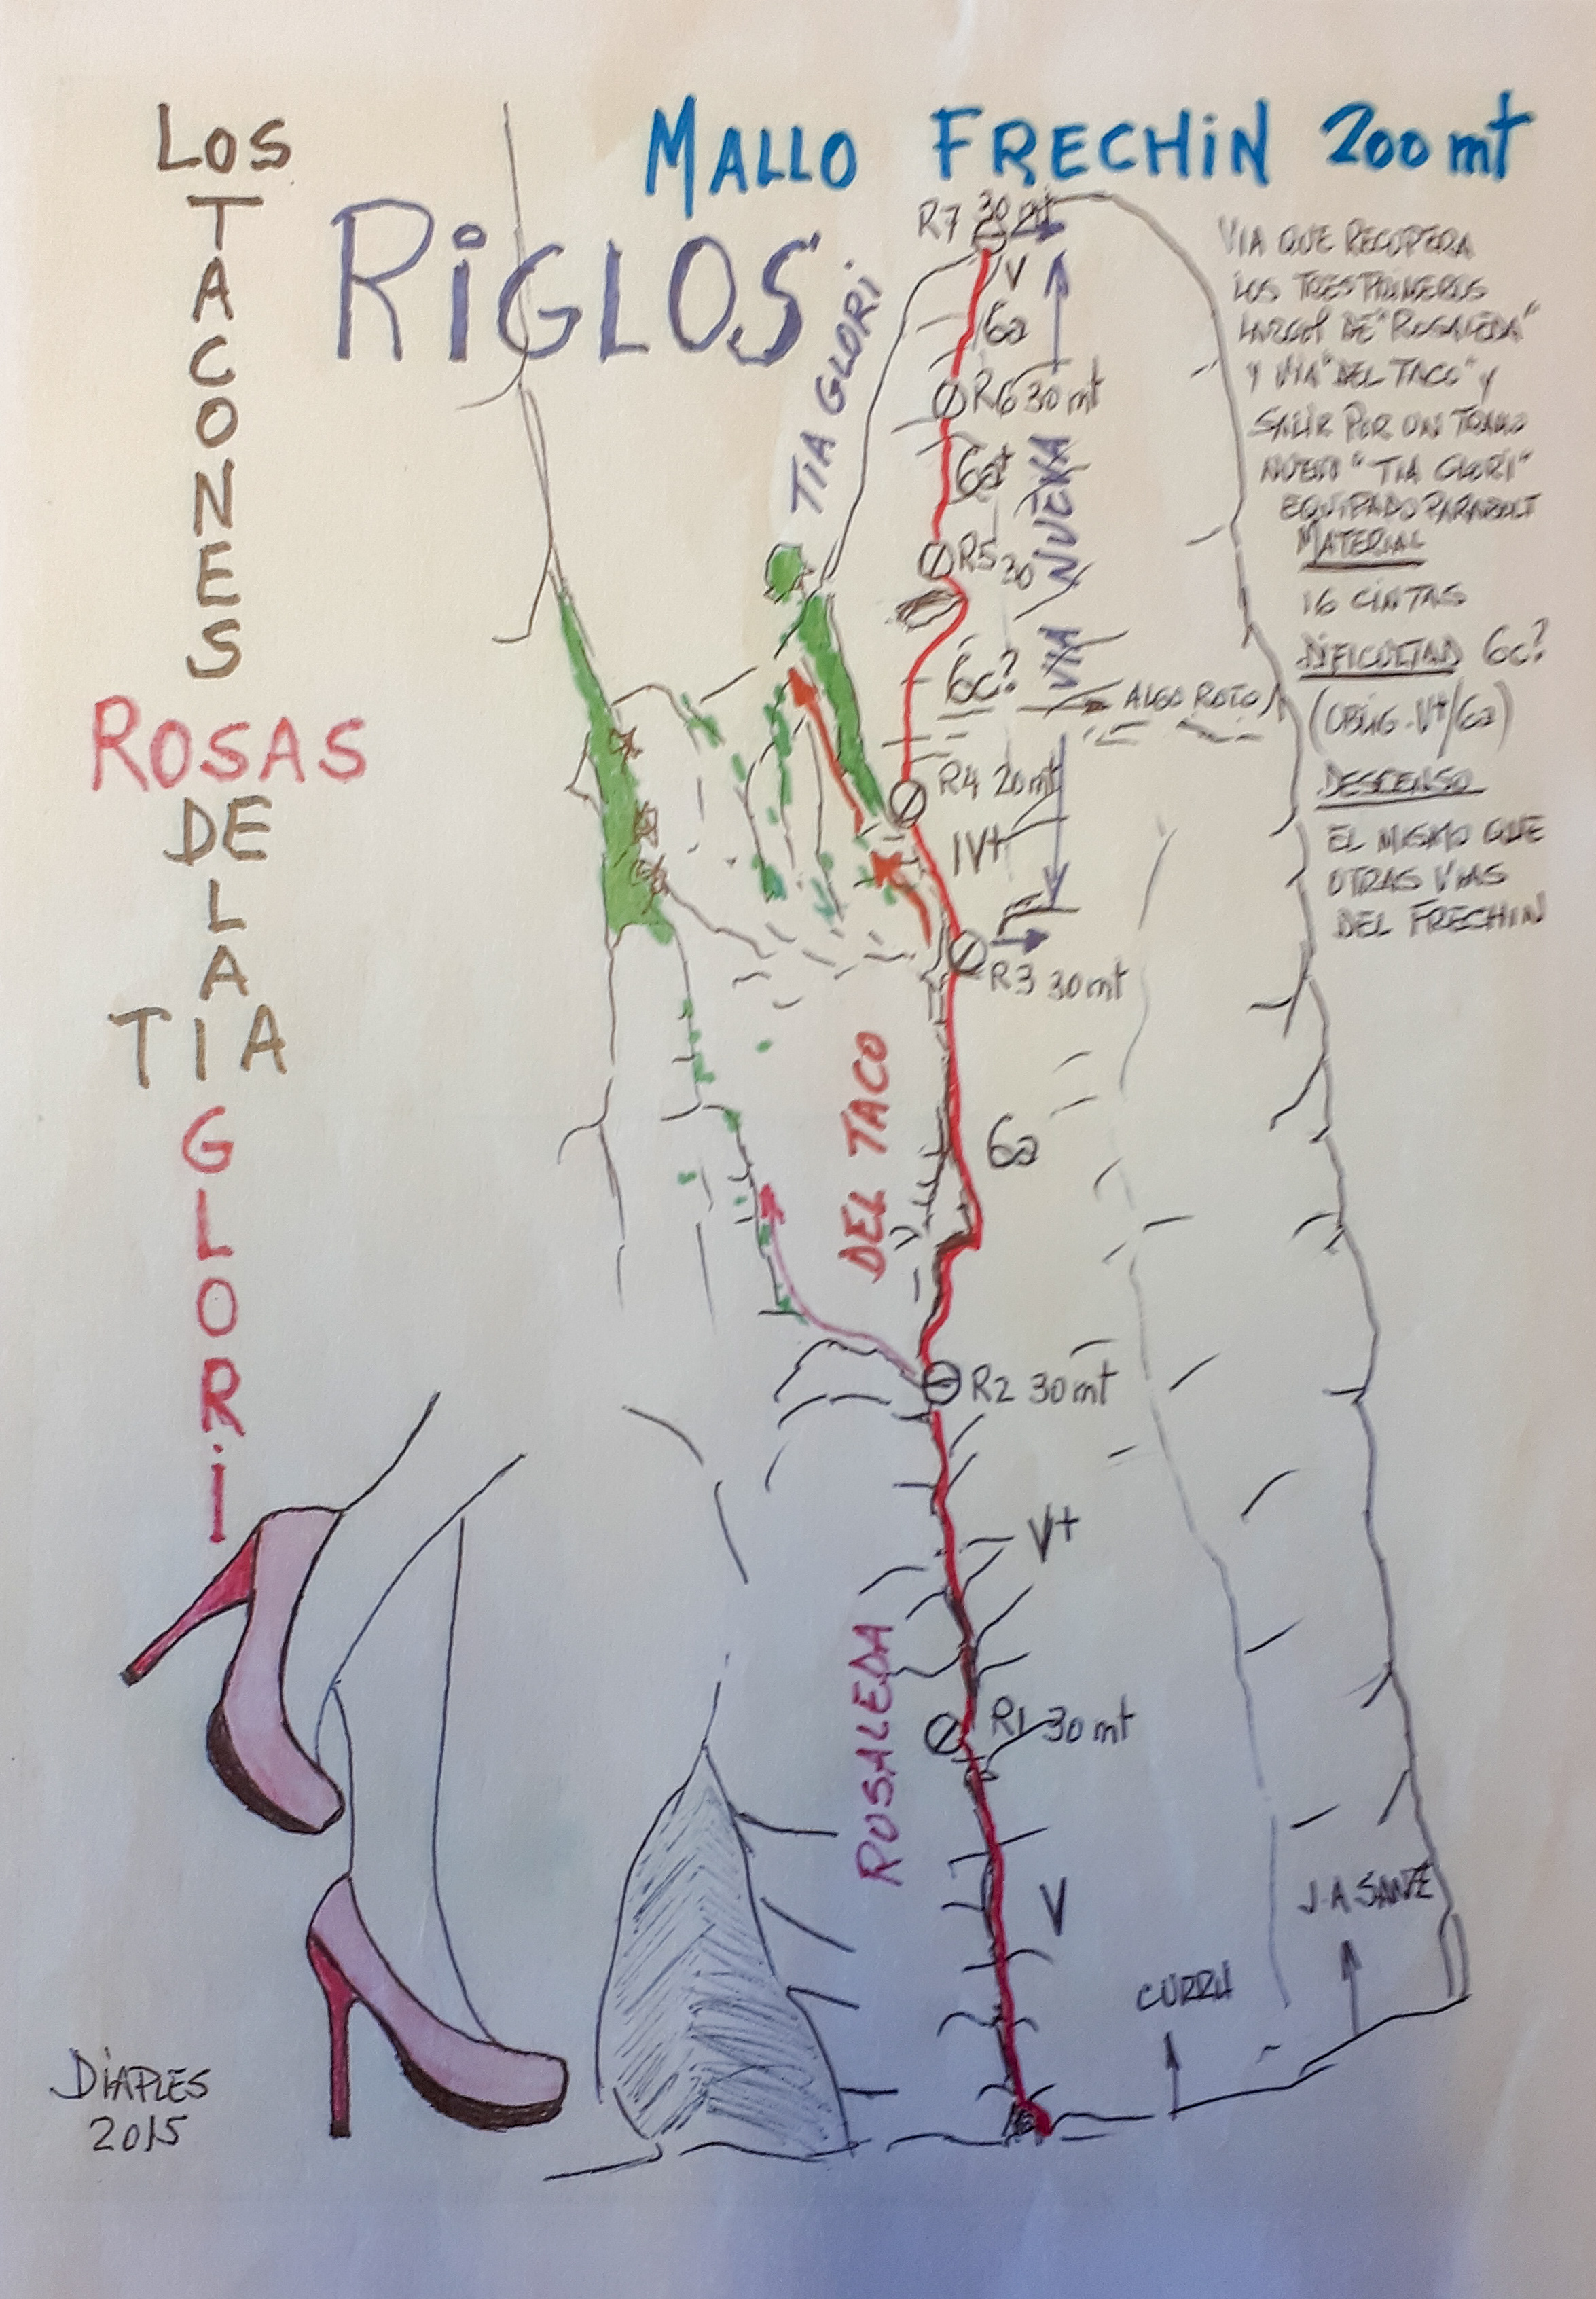 LOS
TACONES
ROSAS
DE
LA
TIA
GLORi
MALLO FRECHiN 200 mt
RiGLOS
TIA GLORi
R7 30 mt
V
6a
R6 30 mt
6a+
R5 30
VIA NUEVA
6c?
ALGO ROTO
R4 20 mt
IV+
R3 30 mt
DEL TACO
6a
R2 30 mt
V+
ROSALEDA
R1 30 mt
V
CURRU
J.A. SANZ
VIA QUE RECUPERA
LOS TRES PRIMEROS
LARGOS DE "ROSALEDA"
Y VIA "DEL TACO" y
SALIR POR UN TRAMO
NUEVO "TIA GLORI"
EQUIPADO PARABOLT
MATERIAL
16 CINTAS
DIFICULTAD 6c?
(OBLIG. V+/6a)
DESCENSO
EL MISMO QUE
OTRAS VIAS
DEL FRECHIN
DiAPLES
2015